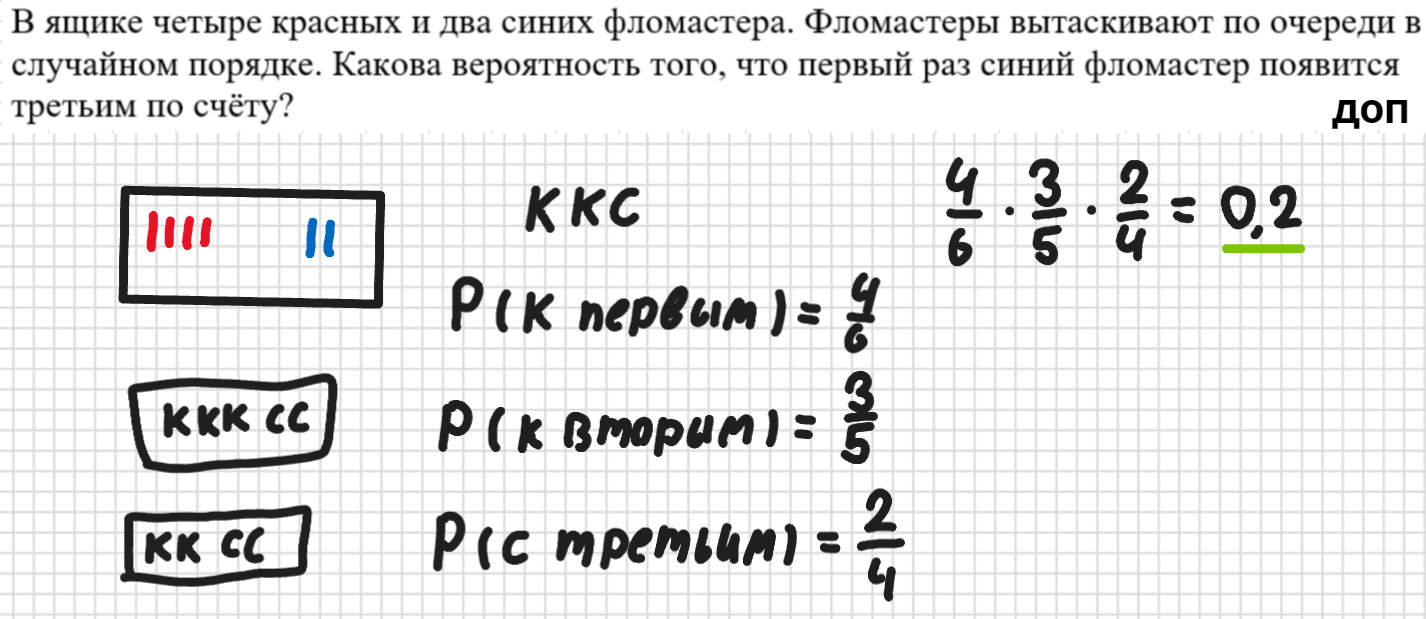 В ящике четыре красных и два синих фломастера. Фломастеры вытаскивают по очереди в
случайном порядке. Какова вероятность того, что первый раз синий фломастер появится
третьим по счёту?
доп
ККС
4/6 · 3/5 · 2/4 = 0,2
P(К первым) = 4/6
ККК СС
P(К вторым) = 3/5
КК СС
P(С третьим) = 2/4